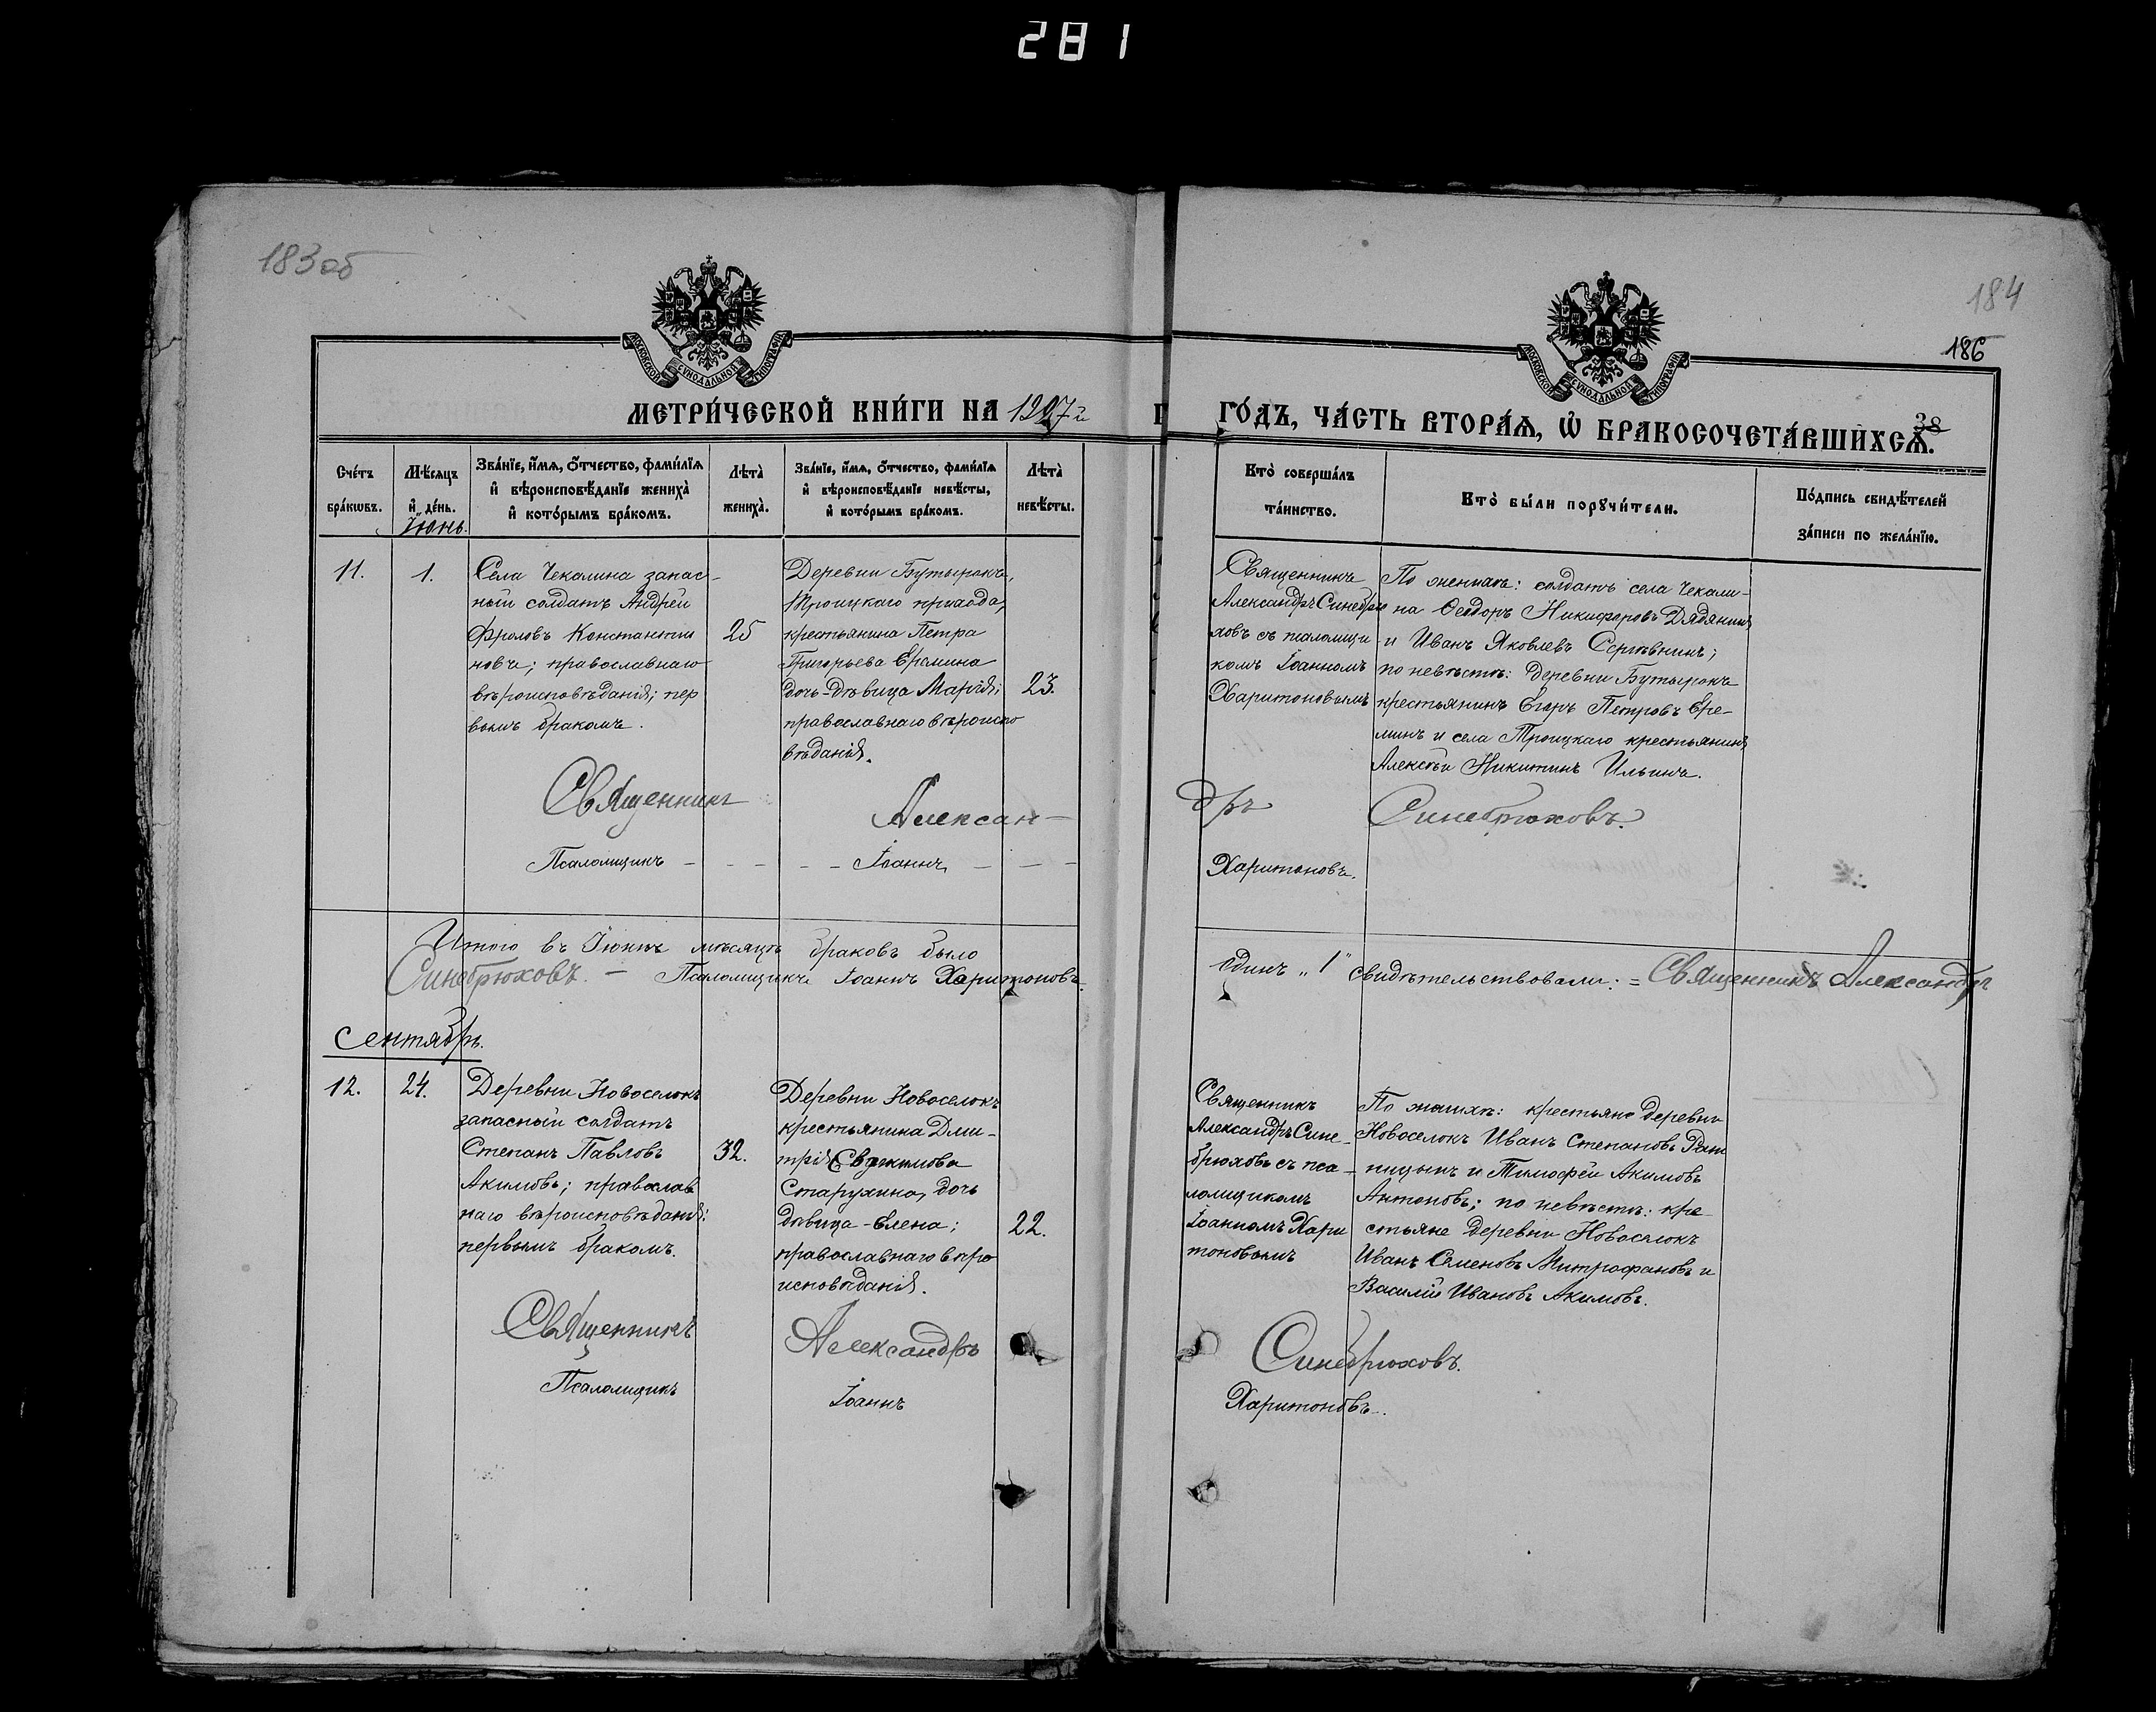 281
183об
184
186
38
МОСКОВСКОЙ СУНОДАЛЬНОЙ ТИПОГРАФІИ
МОСКОВСКОЙ СУНОДАЛЬНОЙ ТИПОГРАФІИ
МЕТРИ́ЧЕСКОЙ КНИ́ГИ НА
ГО́ДЪ, ЧА́СТЬ ВТОРА́Ѧ, Ѡ҆ БРАКОСОЧЕТА́ВШИХСѦ.
Сче́тъ
бра́кѡвъ.
Мѣ́сѧцъ
и҆ де́нь.
Іюнь.
Зва́нїе, и҆́мѧ, ѻ҆́тчество, фами́лїѧ
и҆ вѣроисповѣ́данїе жениха̀
и҆ кото́рымъ бра́комъ.
Лѣта̀
жениха̀.
Зва́нїе, и҆́мѧ, ѻ҆́тчество, фами́лїѧ
и҆ вѣроисповѣ́данїе невѣ́сты,
и҆ кото́рымъ бра́комъ.
Лѣта̀
невѣ́сты.
Кто̀ соверша́лъ
та́инство.
Кто̀ бы́ли порꙋчи́тели.
По́дпись свидѣ́телей
за́писи по жела́нїю.
11.
1.
Села Чекалина запас-
ный солдатъ Андрей
Фроловъ Константи
новъ; православнаго
вѣроисповѣданія; пер
вымъ бракомъ.
25
Деревни Бутырокъ,
Троицкаго прихода,
крестьянина Петра
Григорьева Еремина
дочь-дѣвица Марія;
православнаго вѣроиспо
вѣданія.
23.
Священникъ
Александръ Синебрю
ховъ съ псаломщи
комъ Іоанномъ
Харитоновымъ
По женихѣ: солдатъ села Чекали-
на Ѳеодоръ Никифоровъ Дядянинъ
и Иванъ Яковлевъ Сергѣвнинъ;
по невѣстѣ: деревни Бутырокъ
крестьянинъ Егоръ Петровъ Ере-
минъ и села Троицкаго крестьянинъ
Алексѣй Никитинъ Ильинъ.
Священникъ Алексан-
дръ Синебрюховъ.
Псаломщикъ - - - - - Іоаннъ - - -
Харитоновъ.
Итого въ Іюнѣ мѣсяцѣ браковъ было
единъ „1" свидѣтельствовали: = Священникъ Александръ
Синебрюховъ. - Псаломщикъ Іоаннъ Харитоновъ.
Сентябрь.
12.
24.
Деревни Новоселокъ
запасный солдатъ
Степанъ Павловъ
Акимовъ; православ
наго вѣроисповѣданія:
первымъ бракомъ.
32.
Деревни Новоселокъ
крестьянина Дми-
трія
Старухина, дочь
дѣвица-Елена;
православнаго вѣро
исповѣданія.
22.
Священникъ
Александръ Сине-
брюховъ съ пса-
ломщикомъ
Іоанномъ Хари
тоновымъ
По женихѣ: крестьяне деревни
Новоселокъ Иванъ Степановъ
и Тимофей Акимовъ
Антоновъ; по невѣстѣ: кре-
стьяне деревни Новоселокъ
Иванъ Семеновъ Митрофановъ и
Василій Ивановъ Акимовъ.
Священникъ Александръ
Синебрюховъ.
Псаломщикъ Іоаннъ
Харитоновъ.